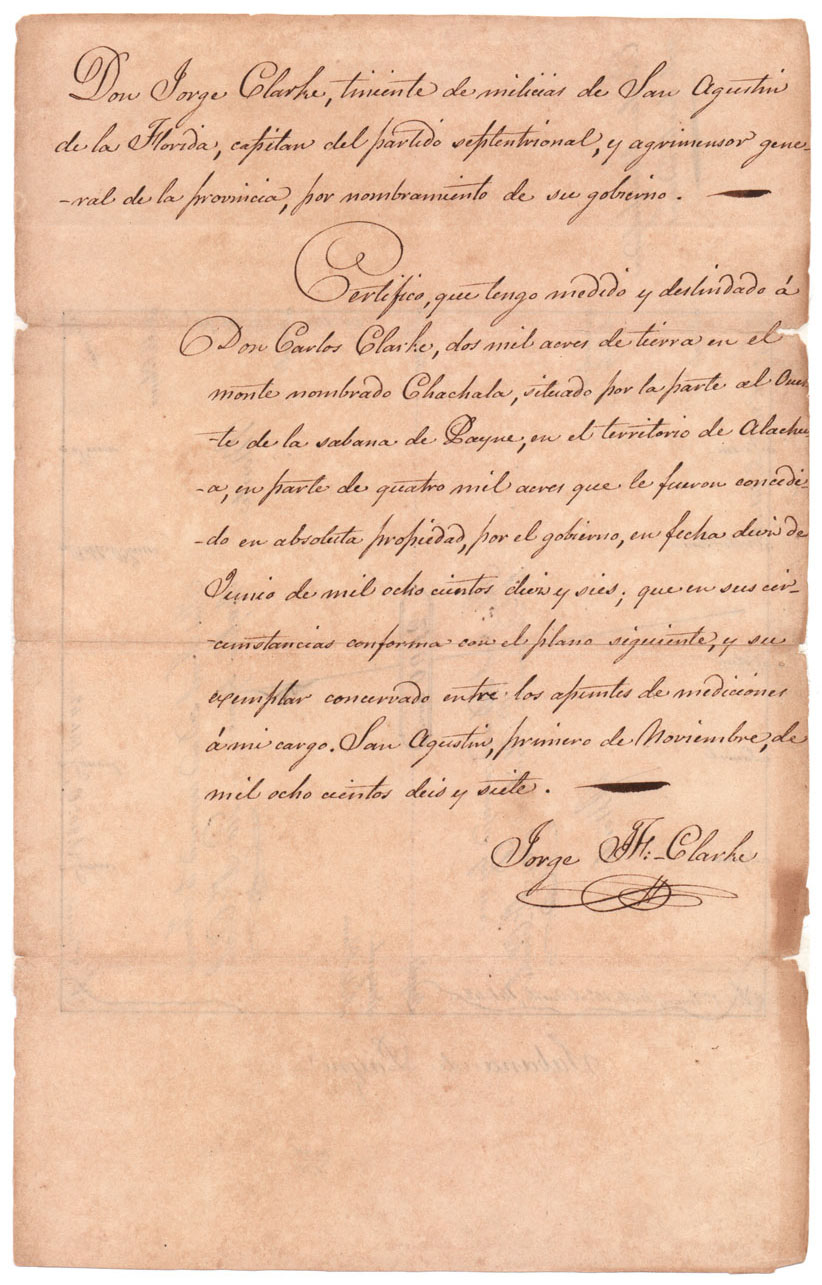 Don Jorge Clarke, tiniente de milicias de San Agustin
de la Florida, capitan del partido septentrional, y agrimensor gene-
-ral de la provincia, por nombramiento de su gobierno.
Certifico, que tengo medido y deslindado á
Don Carlos Clarke, dos mil acres de tierra en el
monte nombrado Chachala, situado por la parte al Oues-
-te de la sabana de Payne, en el territorio de Alachu-
-a, en parte de quatro mil acres que le fueron concedi-
-do en absoluta propiedad, por el gobierno, en fecha de
Junio de mil ocho cientos diez y sies; que en sus cir-
-cunstancias conforma con el plano siguiente, y su
exemplar concervado entre los apuntes de mediciones
á mi cargo. San Agustin, primero de Noviembre, de
mil ocho cientos deis y siete.
Jorge J. F. Clarke
Sabana de Payne